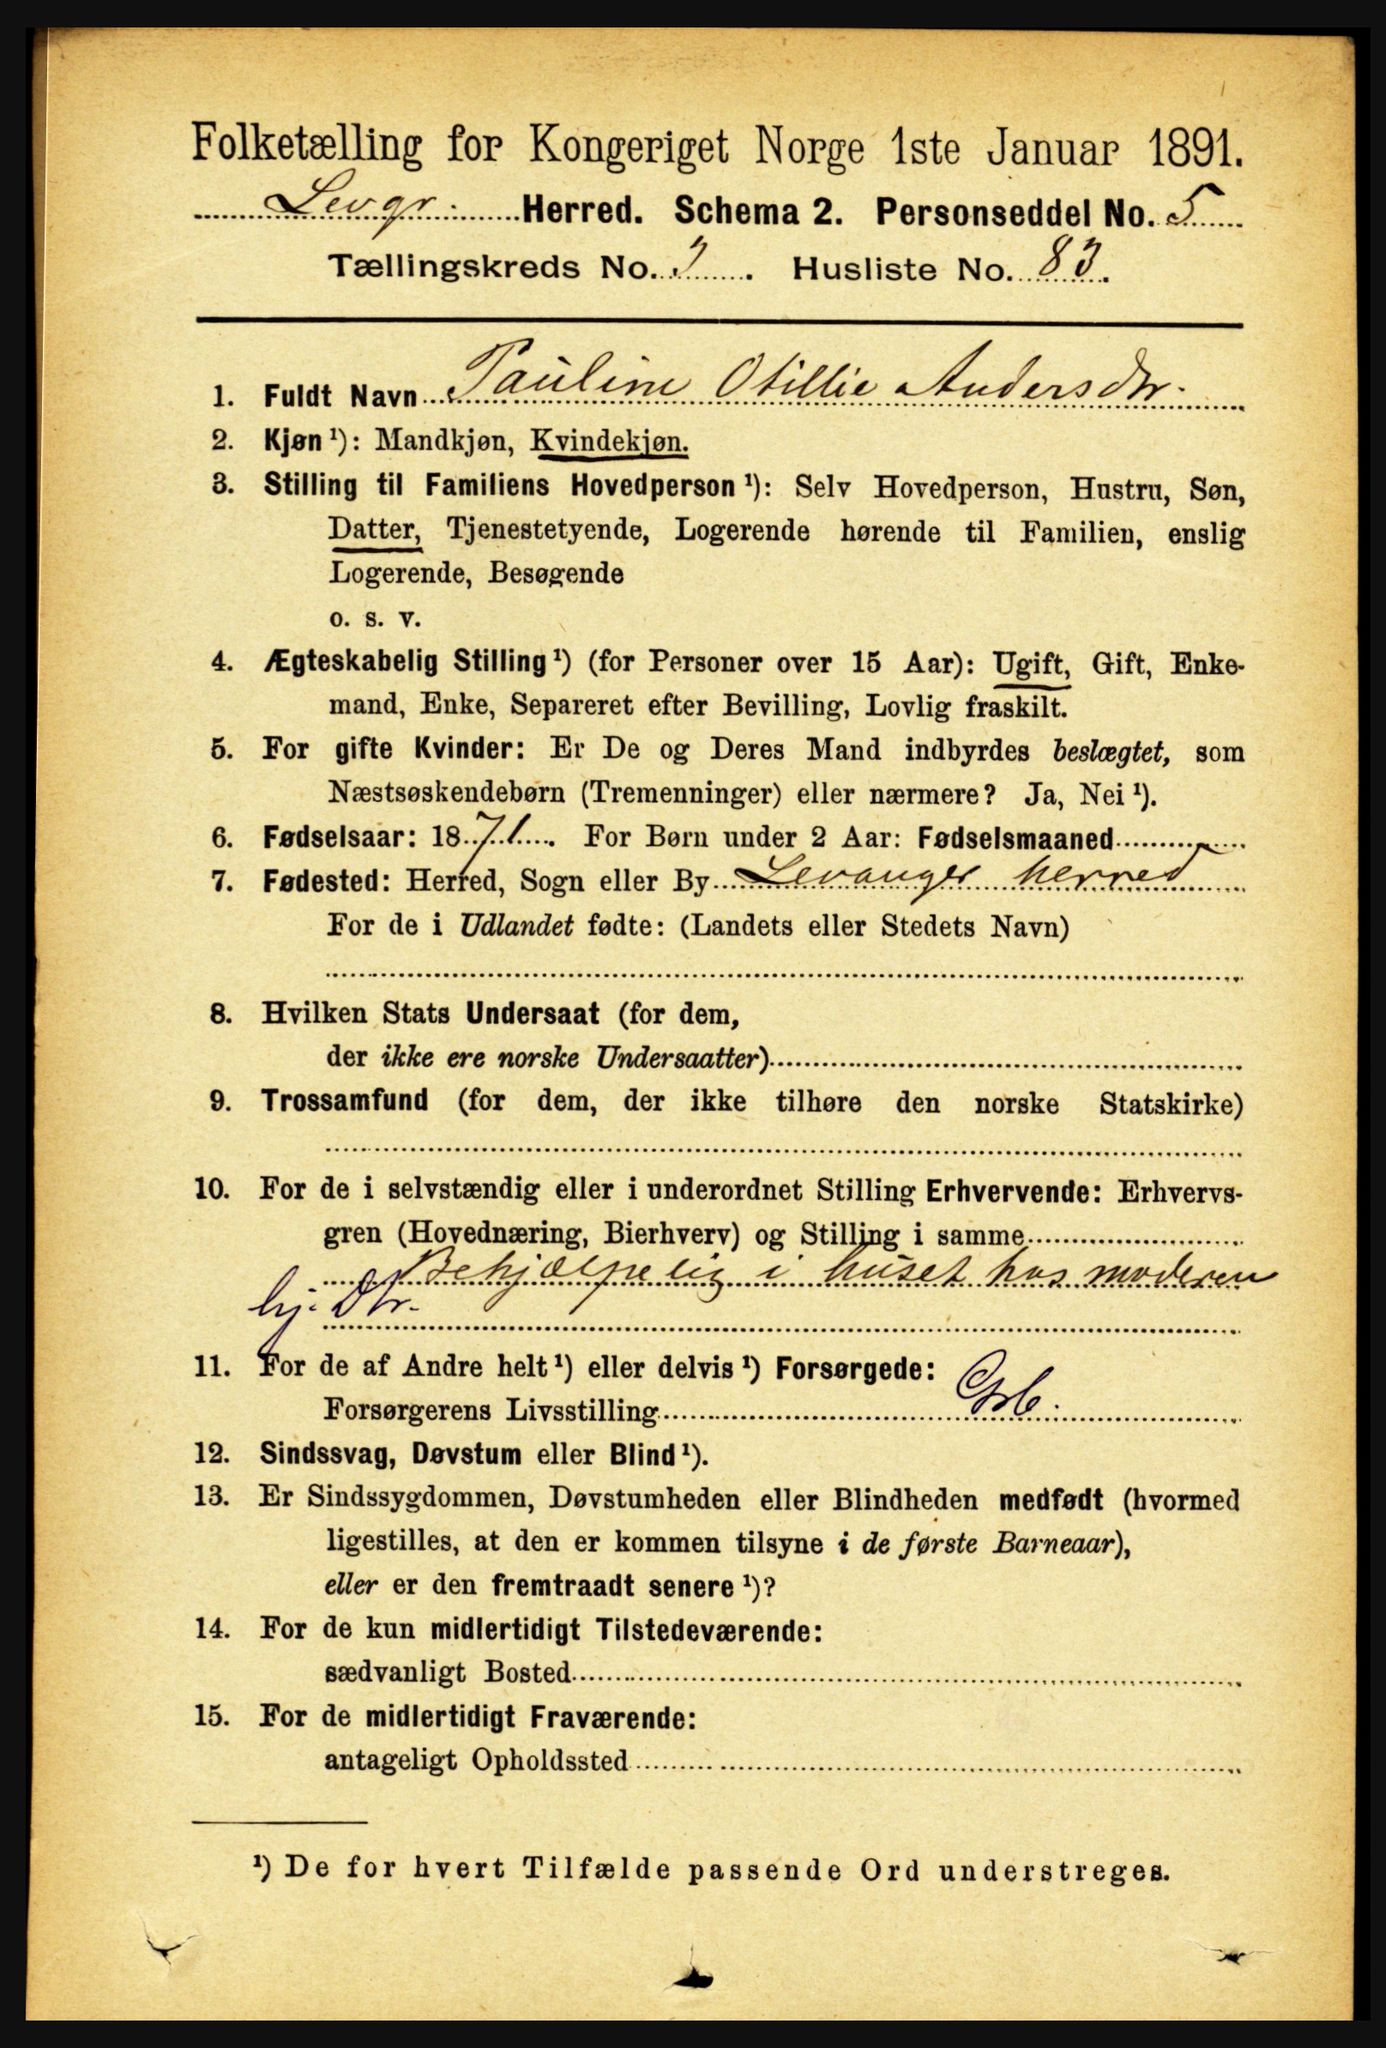 Folketælling for Kongeriget Norge 1ste Januar 1891.
Levgr. Herred. Schema 2. Personseddel No. 5
Tællingskreds No. 3. Husliste No. 83.
1. Fuldt Navn Pauline Otillie Andersdtr.
2. Kjøn ¹): Mandkjøn, Kvindekjøn.
3. Stilling til Familiens Hovedperson ¹): Selv Hovedperson, Hustru, Søn,
Datter, Tjenestetyende, Logerende hørende til Familien, enslig
Logerende, Besøgende
o. s. v.
4. Ægteskabelig Stilling ¹) (for Personer over 15 Aar): Ugift, Gift, Enke-
mand, Enke, Separeret efter Bevilling, Lovlig fraskilt.
5. For gifte Kvinder: Er De og Deres Mand indbyrdes beslægtet, som
Næstsøskendebørn (Tremenninger) eller nærmere? Ja, Nei ¹).
6. Fødselsaar: 1871. For Børn under 2 Aar: Fødselsmaaned
7. Fødested: Herred, Sogn eller By Levanger herred
For de i Udlandet fødte: (Landets eller Stedets Navn)
8. Hvilken Stats Undersaat (for dem,
der ikke ere norske Undersaatter)
9. Trossamfund (for dem, der ikke tilhøre den norske Statskirke)
10. For de i selvstændig eller i underordnet Stilling Erhvervende: Erhvervs-
gren (Hovednæring, Bierhverv) og Stilling i samme
Behjælpelig i huset hos moderen
hj. Dtr.
11. For de af Andre helt ¹) eller delvis ¹) Forsørgede:
Forsørgerens Livsstilling
12. Sindssvag, Døvstum eller Blind ¹).
13. Er Sindssygdommen, Døvstumheden eller Blindheden medfødt (hvormed
ligestilles, at den er kommen tilsyne i de første Barneaar),
eller er den fremtraadt senere ¹)?
14. For de kun midlertidigt Tilstedeværende:
sædvanligt Bosted
15. For de midlertidigt Fraværende:
antageligt Opholdssted
¹) De for hvert Tilfælde passende Ord understreges.